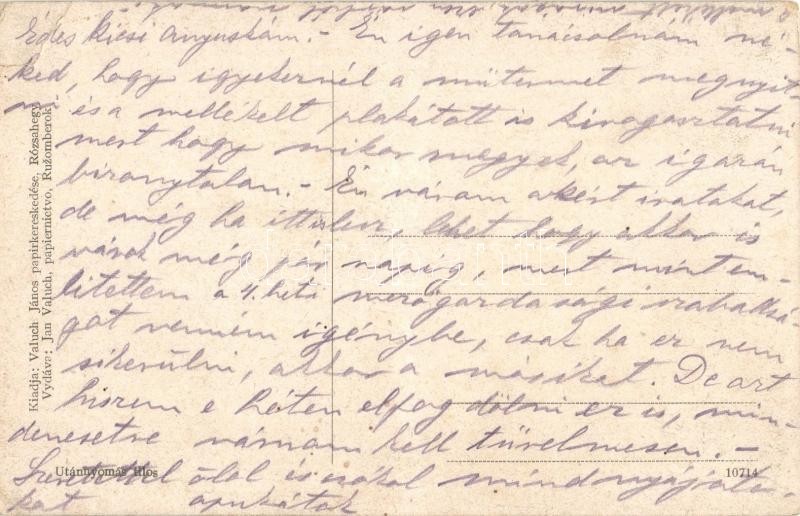 Édes kicsi anyuskám.- Én igen tanácsolnám né-
ked, hogy igyekeznél a műtermet megnyit-
ni és a mellékelt plakátott is kiragasztatni
mert hogy mikor megyek, az igazán
bizonytalan.- Én várom a kért iratokat,
de még ha itt is lesz, lehet hogy akkor is
várok még pár napig, mert mint em-
lítettem a 4 heti mezőgazdasági szabadsá-
got venném igénybe, csak ha ez nem
sikerülni, akkor a másikat. De azt
hiszem e héten elfog dőlni ez is, min-
denesetre várnom kell türelmesen.-
Szeretettel ölel és csókol mindnyájato-
kat apukátok
Kiadja: Valuch János papirkereskedése, Rózsahegy.
Vydáva: Jan Valuch, papiernictvo, Ružomberok.
Utánnyomás tilos
10714